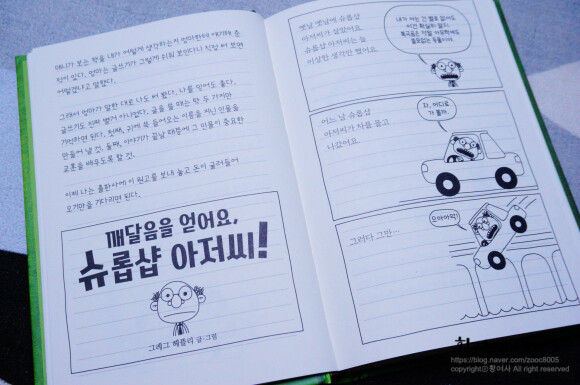 매니가 보는 책을 내가 어떻게 생각하는지 엄마한테 얘기해 준
적이 있다. 엄마는 글쓰기가 그렇게 쉬워 보인다니 직접 써 보면
어떻겠냐고 말했다.
그래서 엄마가 말한 대로 나도 써 봤다. 나를 믿어도 좋다.
글쓰기도 진짜 별거 아니었다. 글을 쓸 때는 딱 두 가지만
기억하면 된다. 첫째, 귀에 쏙 들어오는 이름을 써서 인물을
만들어 낼 것. 둘째, 이야기가 끝날 때쯤에 그 인물이 중요한
교훈을 배우도록 할 것.
이제 나는 출판사에 이 원고를 보내 놓고 돈이 굴러들어
오기만을 기다리면 된다.
깨달음을 얻어요,
슈롭샵 아저씨!
그레그 헤플리 글·그림
옛날 옛날에 슈롭샵
아저씨가 살았어요.
슈롭샵 아저씨는 늘
이상한 생각만 했어요.
내가 아는 건 별로 없어도
이건 확실히 알지.
북극곰은 정말
쓸모없는 동물이야.
어느 날 슈롭샵
아저씨가 차를 몰고
나갔어요.
자, 어디로
가 볼까.
그러다 그만…
으아아악!
https://blog.naver.com/zooc8005
copyrightⓒ황여사 All right reserved